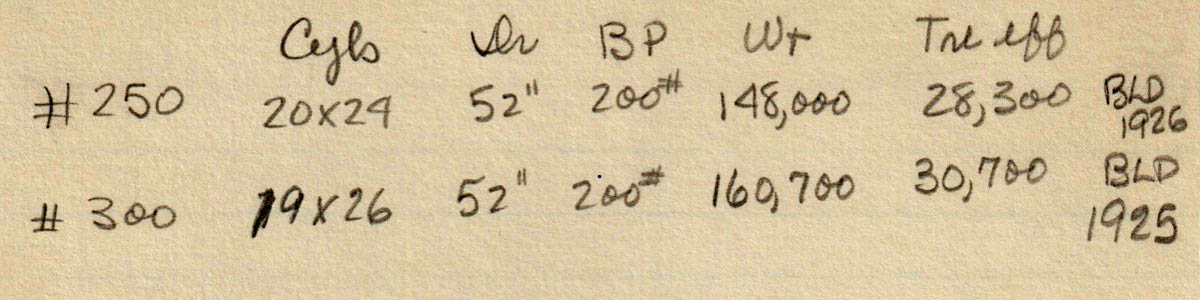 Cyls Dr BP Wt Tr eff
# 250 20x24 52" 200# 148,000 28,300 BLD 1926
# 300 19x26 52" 200# 160,700 30,700 BLD 1925